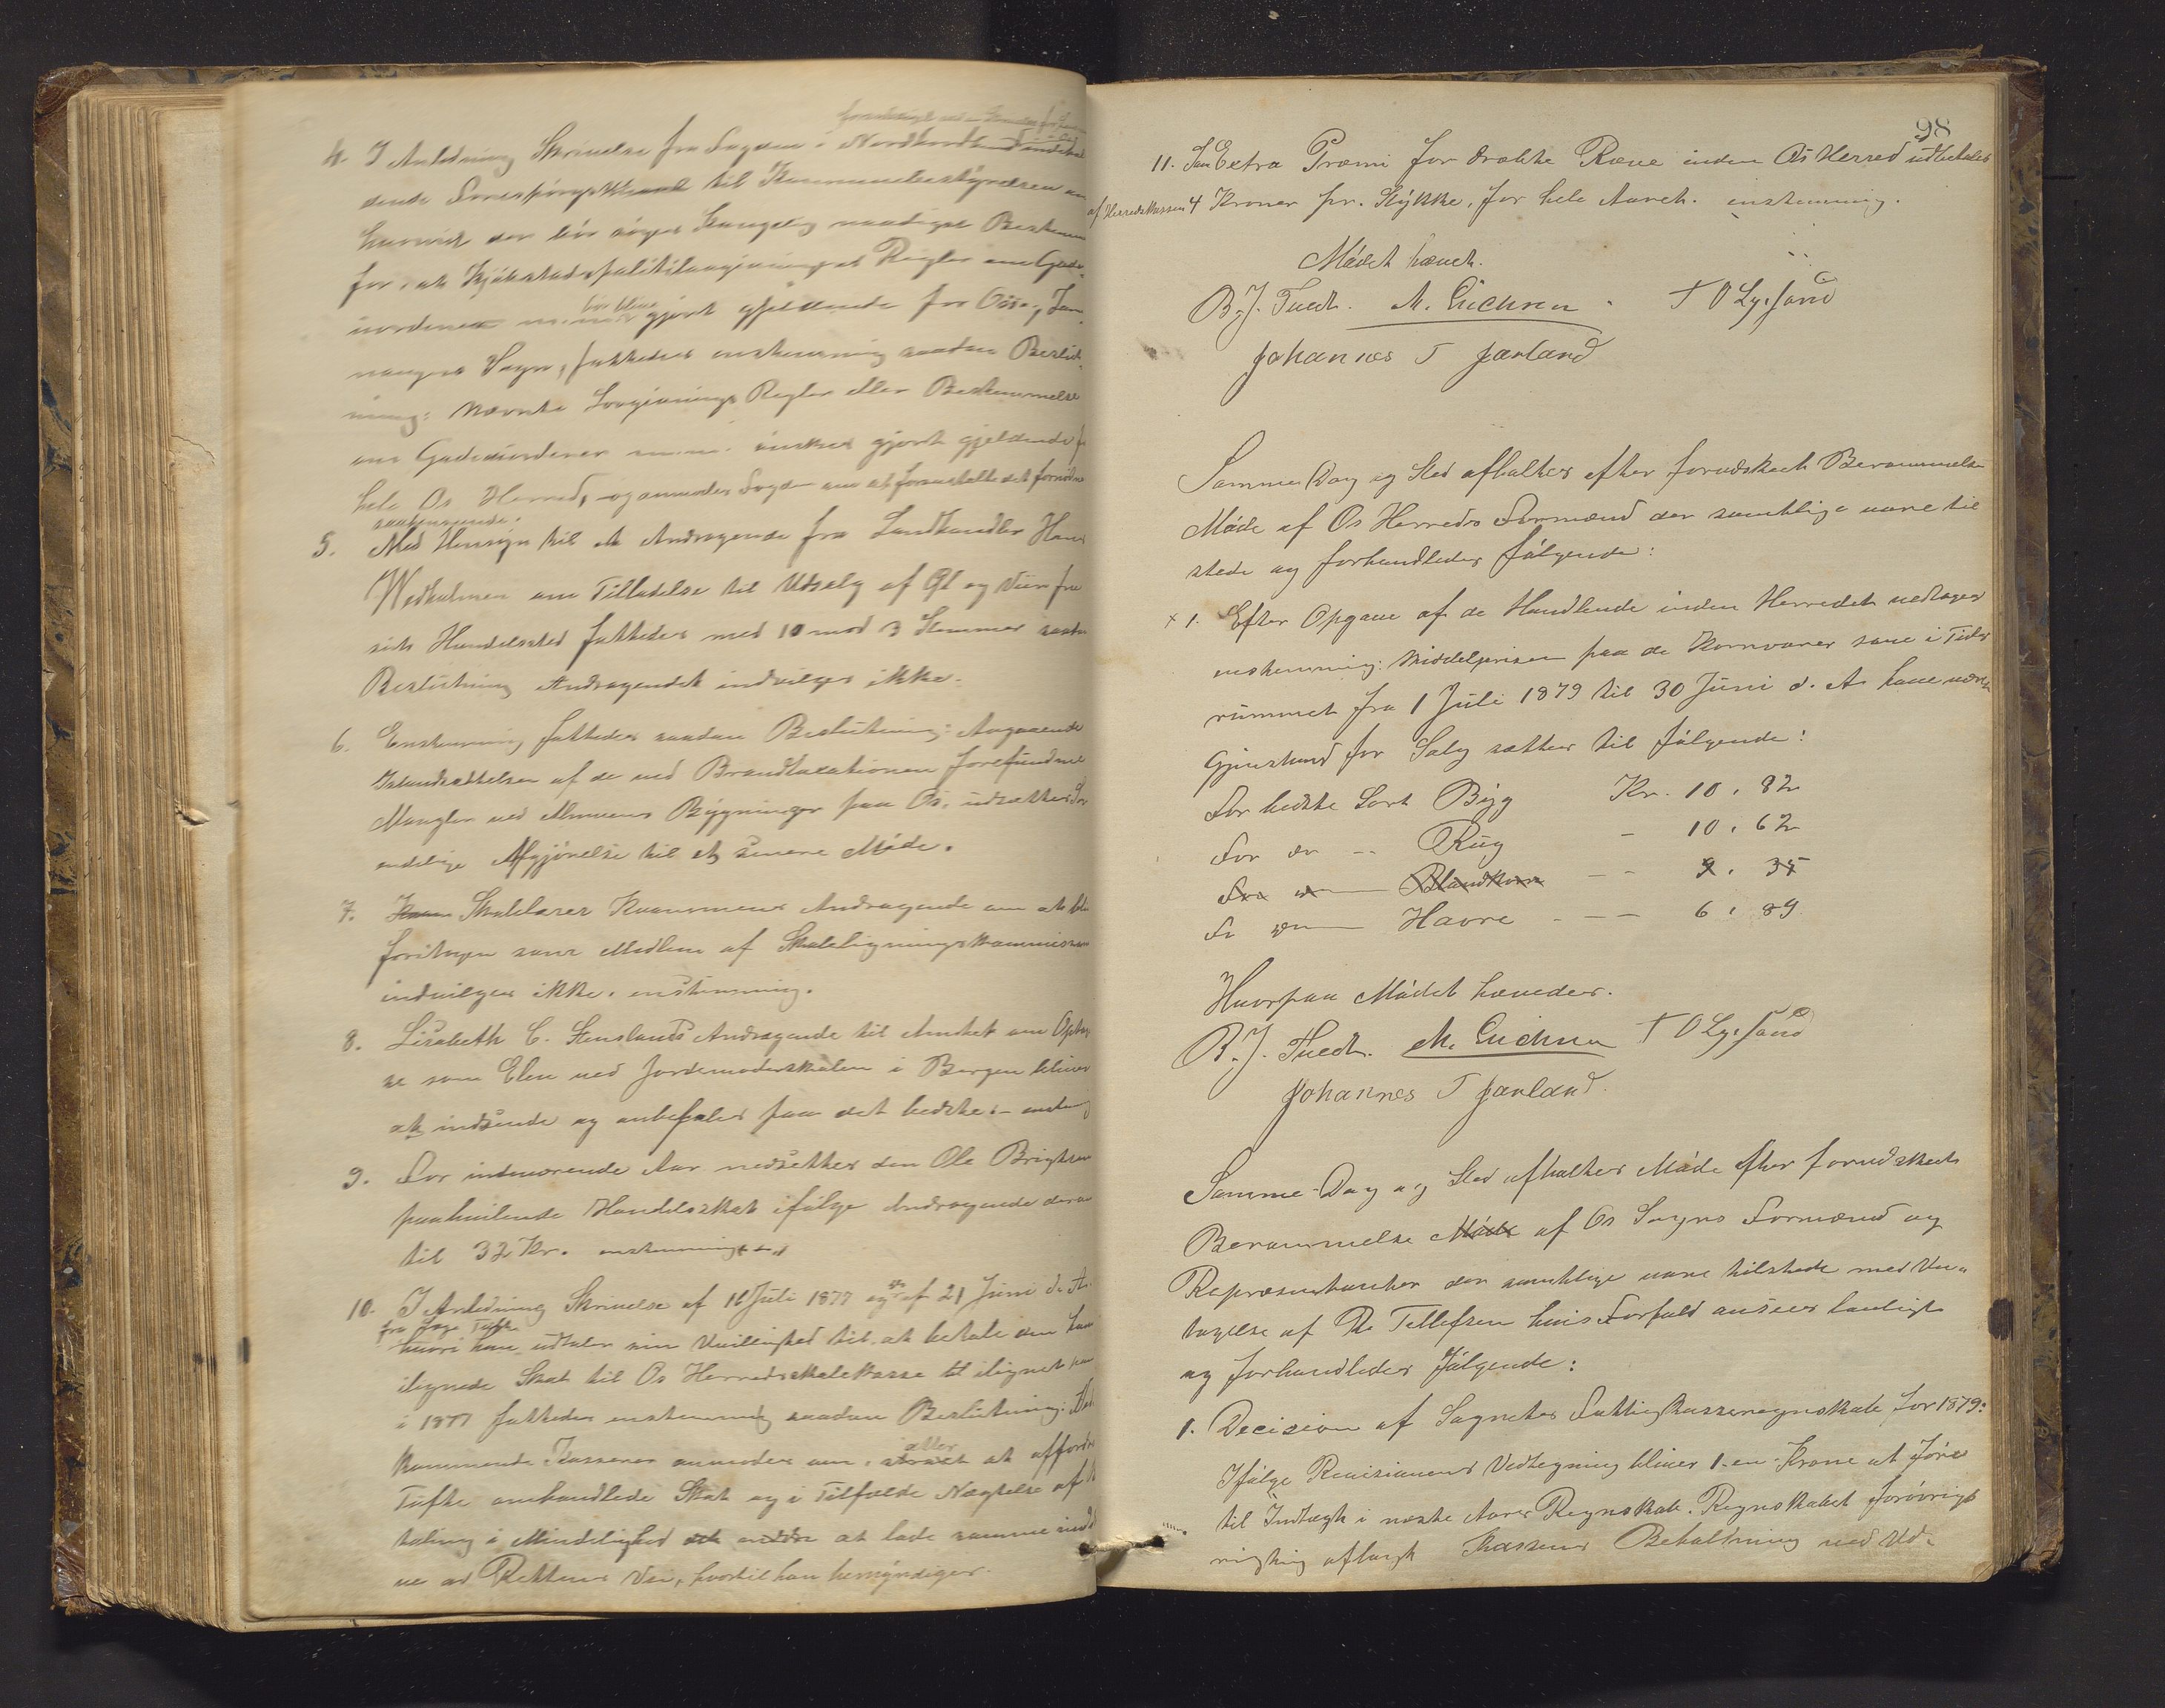 4. I Anledning Skrivelse fra Fogden i Nordhordland
dende Forespørgsel til Kommunebestyrelsen om
hvorvidt der bør søges Kongelig naadigst Bestem
for at Kjøbstadspolitilovgivningens Regler om Gade
uordener m.m. bør blive gjort gjeldende for Os
Sogn, fattedes enstemmig saadan Beslut
ning: Nævnte Lovgivnings Regler eller Bestemmelse
om Gadeuordener m.m. ønskes gjort gjeldende f
hele Os Herred, og anmodes Foged om at foranstalte det fornødne
saahenseende.
5. Med Hensyn til et Andragende fra Landhandler Hans
Wedholmen om Tilladelse til Udsalg af Øl og Viin fra
sit Handelssted fattedes med 10 mod 3 Stemmer saadan
Beslutning Andragendet indvilges ikke.
6. Enstemmig fattedes saadan Beslutning: Angaaende
Istandsættelsen af de ved Brandtaxationen forefundne
Mangler ved Almuens Bygninger paa Os, udsættes den
endelige Afgjørelse til et senere Møde.
7. Skolelærer Kvammens Andragende om at bli
foretagen som Medlem af Skoleligningskommission
indvilges ikke. enstemmig.
8. Lisabeth C. Stenslands Andragende til Amtet om Optag
se som Elev ved Jordemoderskolen i Bergen bliver
at indsende og anbefales paa det bedste. - enstemmig
9. For indeværende Aar nedsættes den Ole Brigtsen
paahvilende Handelsskat ifølge Andragende derom
til 32 Kr. enstemmig
10. I Anledning Skrivelse af 16 Juli 1877 og af 21 Juni d. A.
fra Tufte
hvori han udtaler sin Uvillighed til at betale den ham
ilignede Skat til Os Herredsskolekasse ilignet paa
i 1877 fattedes enstemmig saadan Beslutning: Ved
kommende Kasserer anmodes om atter at affordre
Tufte omhandlede Skat og i Tilfælde Nægtelse af Be
taling i Mindelighed at lade samme indd
ve ad Rettens Vei, hvortil han bemyndiges.
98
11. Som Extra Præmi for dræbte Ræve inden Os Herred udbetales
af Herredskassen 4 Kroner pr. Stykke, for hele Aaret. enstemmig.
Mødet hævet.
B. J. Tuedt. M. Erichsen T O Lysesand
Johannes T Jarland
Samme Dag og Sted afholtes efter forudskeet Berammelse
Møde af Os Herreds Formænd der samtlige vare til
stede og forhandledes følgende:
x 1. Efter Opgave af de Handlende inden Herredet vedtages
enstemmig: Middelprisen paa de Kornvarer som i Tids
rummet fra 1 Juli 1879 til 30 Juni d. A. have været
Gjenstand for Salg sættes til følgende:
For bedste Sort Byg Kr. 10, 82
For do -- Rug - 10, 62
For do Blandkorn -- 9, 35
For do Havre --- 6, 89
Hvorpaa Mødet hævedes.
B. J. Tuedt. M. Erichsen T O Lysesand
Johannes T Jarland.
Samme Dag og Sted afholtes Møde efter forudskeet
Berammelse Møde af Os Sogns Formænd og
Repræsentanter der samtlige vare tilstede med Und
tagelse af Tellefsen hvis Forfald ansees lovligt
og forhandledes følgende:
1. Decision af Sognets Fattigkasseregnskab for 1879:
Ifølge Revisionens Vedtegning bliver 1 - en - Krone at føre
til Indtægt i næste Aars Regnskab. Regnskabet forøvrigt
rigtig aflagt Kassens Beholdning ved Ud-